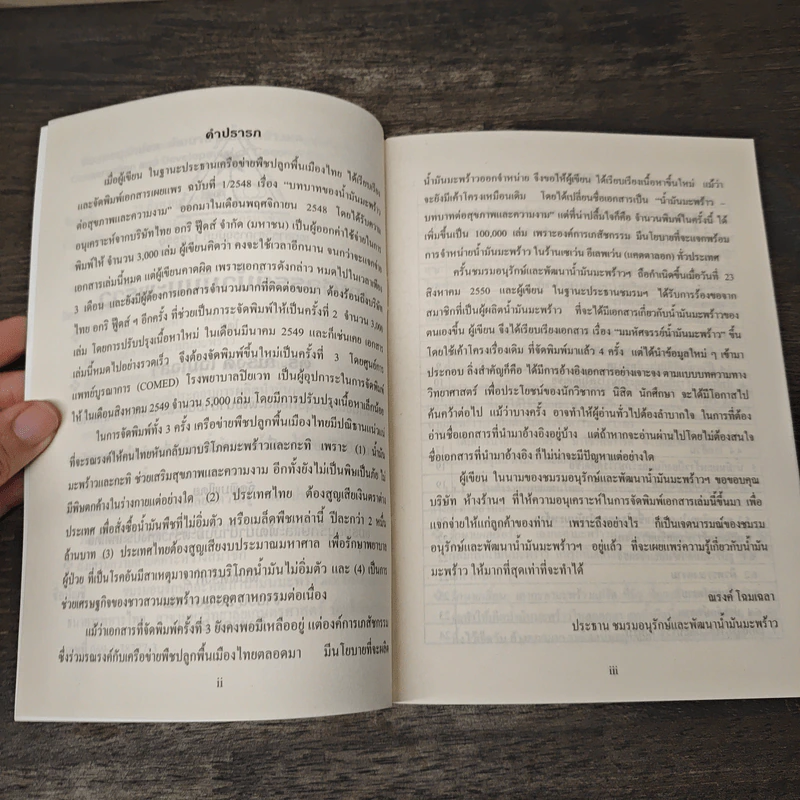 คำปรารภ
เมื่อผู้เขียน ในฐานะประธานเครือข่ายพืชปลูกพื้นเมืองไทย ได้เรียบเรียง
และจัดพิมพ์เอกสารเผยแพร่ ฉบับที่ 1/2548 เรื่อง "บทบาทของน้ำมันมะพร้าว
ต่อสุขภาพและความงาม" ออกมาในเดือนพฤศจิกายน 2548 โดยได้รับความ
อนุเคราะห์จากบริษัทไทย อกริ ฟู๊ดส์ จำกัด (มหาชน) เป็นผู้ออกค่าใช้จ่ายในการ
พิมพ์ให้ จำนวน 3,000 เล่ม ผู้เขียนคิดว่า คงจะใช้เวลาอีกนาน จนกว่าจะแจกจ่าย
เอกสารเล่มนี้หมด แต่ผู้เขียนคาดผิด เพราะเอกสารดังกล่าว หมดไปในเวลาเพียง
3 เดือน และยังมีผู้ต้องการเอกสารจำนวนมากที่ติดต่อขอมา ต้องร้อนถึงบริษัท
ไทย อกริ ฟู๊ดส์ ฯ อีกครั้ง ที่ช่วยเป็นภาระจัดพิมพ์ให้เป็นครั้งที่ 2 จำนวน 3,000
เล่ม โดยการปรับปรุงเนื้อหาใหม่ ในเดือนมีนาคม 2549 และก็เช่นเคย เอกสาร
เล่มนี้หมดไปอย่างรวดเร็ว จึงต้องจัดพิมพ์ขึ้นใหม่เป็นครั้งที่ 3 โดยศูนย์การ
แพทย์บูรณาการ (COMED) โรงพยาบาลปิยะเวท เป็นผู้อุปการะในการจัดพิมพ์
ให้ ในเดือนสิงหาคม 2549 จำนวน 5,000 เล่ม โดยมีการปรับปรุงเนื้อหาเล็กน้อย
ในการจัดพิมพ์ทั้ง 3 ครั้ง เครือข่ายพืชปลูกพื้นเมืองไทยมีปณิธานแน่วแน่
ที่จะรณรงค์ให้คนไทยหันกลับมาบริโภคมะพร้าวและกะทิ เพราะ (1) น้ำมัน
มะพร้าวและกะทิ ช่วยเสริมสุขภาพและความงาม อีกทั้งยังไม่เป็นพิษเป็นภัย ไม่
มีพิษตกค้างในร่างกายแต่อย่างใด (2) ประเทศไทย ต้องสูญเสียเงินตราต่าง
ประเทศ เพื่อสั่งซื้อน้ำมันพืชที่ไม่อิ่มตัว หรือเมล็ดพืชเหล่านี้ ปีละกว่า 2 หมื่น
ล้านบาท (3) ประเทศไทยต้องสูญเสียงบประมาณมหาศาล เพื่อรักษาพยาบาล
ผู้ป่วย ที่เป็นโรคอันมีสาเหตุมาจากการบริโภคน้ำมันไม่อิ่มตัว และ (4) เป็นการ
ช่วยเศรษฐกิจของชาวสวนมะพร้าว และอุตสาหกรรมต่อเนื่อง
แม้ว่าเอกสารที่จัดพิมพ์ครั้งที่ 3 ยังคงพอมีเหลืออยู่ แต่องค์การเภสัชกรรม
ซึ่งร่วมรณรงค์กับเครือข่ายพืชปลูกพื้นเมืองไทยตลอดมา มีนโยบายที่จะผลิต
ii
น้ำมันมะพร้าวออกจำหน่าย จึงขอให้ผู้เขียน ได้เรียบเรียงเนื้อหาขึ้นใหม่ แม้ว่า
จะยังมีเค้าโครงเหมือนเดิม โดยได้เปลี่ยนชื่อเอกสารเป็น "น้ำมันมะพร้าว –
บทบาทต่อสุขภาพและความงาม" แต่ที่น่าปลื้มใจก็คือ จำนวนพิมพ์ในครั้งนี้ ได้
เพิ่มขึ้นเป็น 100,000 เล่ม เพราะองค์การเภสัชกรรม มีนโยบายที่จะแจกพร้อม
การจำหน่ายน้ำมันมะพร้าว ในร้านเซเว่น อีเลพเว่น (แคตตาลอก) ทั่วประเทศ
ครั้นชมรมอนุรักษ์และพัฒนาน้ำมันมะพร้าวฯ ถือกำเนิดขึ้นเมื่อวันที่ 23
สิงหาคม 2550 และผู้เขียน ในฐานะประธานชมรมฯ ได้รับการร้องขอจาก
สมาชิกที่เป็นผู้ผลิตน้ำมันมะพร้าว ที่จะได้มีเอกสารเกี่ยวกับน้ำมันมะพร้าวของ
ตนเองขึ้น ผู้เขียน จึงได้เรียบเรียงเอกสาร เรื่อง "มหัศจรรย์น้ำมันมะพร้าว" ขึ้น
โดยใช้เค้าโครงเรื่องเดิม ที่จัดพิมพ์มาแล้ว 4 ครั้ง แต่ได้นำข้อมูลใหม่ ๆ เข้ามา
ประกอบ สิ่งสำคัญก็คือ ได้มีการอ้างอิงเอกสารอย่างเจาะจง ตามแบบบทความทาง
วิทยาศาสตร์ เพื่อประโยชน์ของนักวิชาการ นิสิต นักศึกษา จะได้มีโอกาสไป
ค้นคว้าต่อไป แม้ว่าบางครั้ง อาจทำให้ผู้อ่านทั่วไปต้องลำบากใจ ในการที่ต้อง
อ่านชื่อเอกสารที่นำมาอ้างอิงอยู่บ้าง แต่ถ้าหากจะอ่านผ่านไปโดยไม่ต้องสนใจ
ชื่อเอกสารที่นำมาอ้างอิง ก็ไม่น่าจะมีปัญหาแต่อย่างใด
ผู้เขียน ในนามของชมรมอนุรักษ์และพัฒนาน้ำมันมะพร้าวฯ ขอขอบคุณ
บริษัท ห้างร้านฯ ที่ให้ความอนุเคราะห์ในการจัดพิมพ์เอกสารเล่มนี้ขึ้นมา เพื่อ
แจกจ่ายให้แก่ลูกค้าของท่าน เพราะถึงอย่างไร ก็เป็นเจตนารมณ์ของชมรม
อนุรักษ์และพัฒนาน้ำมันมะพร้าวฯ อยู่แล้ว ที่จะเผยแพร่ความรู้เกี่ยวกับน้ำมัน
มะพร้าว ให้มากที่สุดเท่าที่จะทำได้
ณรงค์ โฉมเฉลา
ประธาน ชมรมอนุรักษ์และพัฒนาน้ำมันมะพร้าว
iii